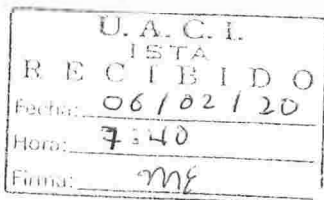 U. A. C. I.
ISTA
RECIBIDO
Fecha: 06/02/20
Hora: 7:40
Firma: